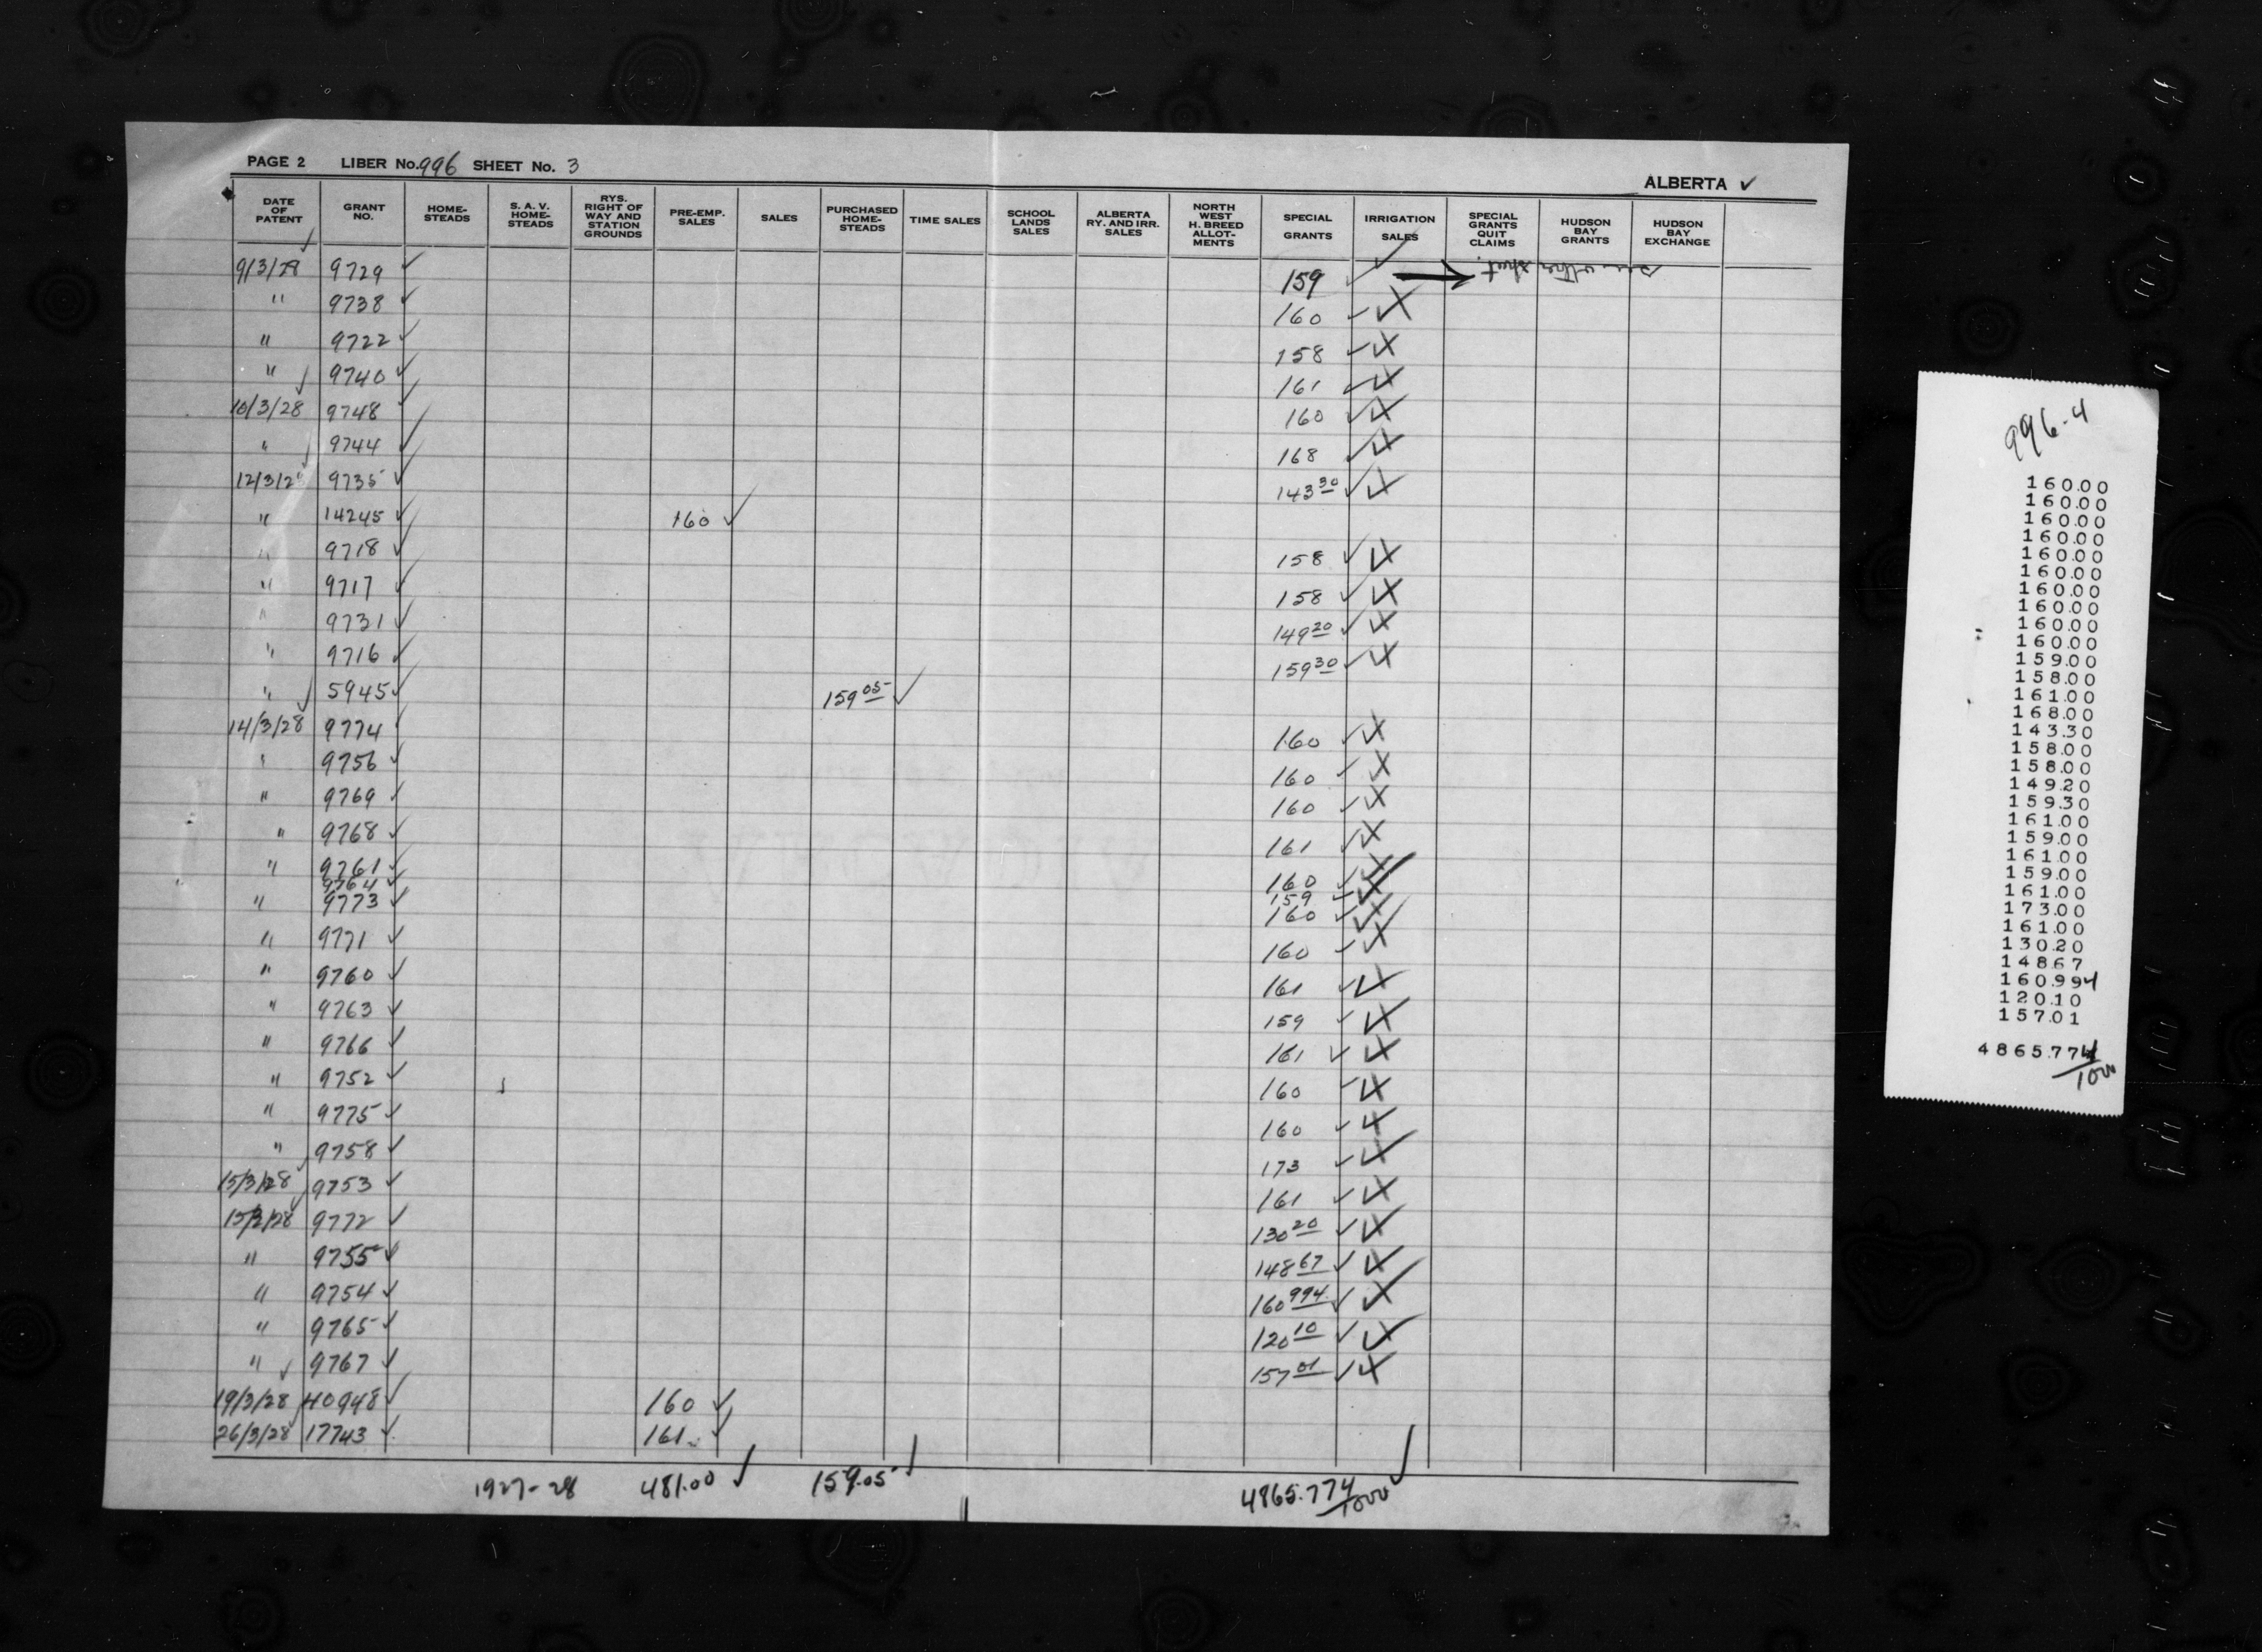 PAGE 2 LIBER No. 996 SHEET No. 3
ALBERTA ✓
DATE OF PATENT GRANT NO. HOME-STEADS S. A. V. HOME-STEADS RYS. RIGHT OF WAY AND STATION GROUNDS PRE-EMP. SALES SALES PURCHASED HOME-STEADS TIME SALES SCHOOL LANDS SALES ALBERTA RY. AND IRR. SALES NORTH WEST H. BREED ALLOT-MENTS SPECIAL GRANTS IRRIGATION SALES SPECIAL GRANTS QUIT CLAIMS HUDSON BAY GRANTS HUDSON BAY EXCHANGE
9/3/28 9729 ✓ 159 ✓ → see other sheet
" 9738 ✓ 160 ✓
" 9722 ✓ 158 ✓
" 9740 ✓ 161 ✓
10/3/28 9748 ✓ 160 ✓
" 9744 ✓ 168 ✓
12/3/28 9735 ✓ 143 30 ✓
" 14245 ✓ 160 ✓
" 9718 ✓ 158 ✓
" 9717 ✓ 158 ✓
" 9731 ✓ 149 20 ✓
" 9716 ✓ 159 30 ✓
" 5945 ✓ 159 05 ✓
14/3/28 9774 ✓ 160 ✓
" 9756 ✓ 160 ✓
" 9769 ✓ 160 ✓
" 9768 ✓ 161 ✓
" 9761 ✓ 160 ✓
9764 ✓ 159 ✓
" 9773 ✓ 160 ✓
" 9771 ✓ 160 ✓
" 9760 ✓ 161 ✓
" 9763 ✓ 159 ✓
" 9766 ✓ 161 ✓
" 9752 ✓ 160 ✓
" 9775 ✓ 160 ✓
" 9758 ✓ 173 ✓
15/3/28 9753 ✓ 161 ✓
15/3/28 9772 ✓ 130 20 ✓
" 9755 ✓ 148 67 ✓
" 9754 ✓ 160 994 ✓
" 9765 ✓ 120 10 ✓
" 9767 ✓ 157 01 ✓
19/3/28 40948 ✓ 160 ✓
26/3/28 17743 ✓ 161 ✓
1927-28 481.00 ✓ 159.05 ✓ 4865.774/1000 ✓
996-4
160.00
160.00
160.00
160.00
160.00
160.00
160.00
160.00
160.00
160.00
159.00
158.00
161.00
168.00
143.30
158.00
158.00
149.20
159.30
161.00
159.00
161.00
159.00
161.00
173.00
161.00
130.20
148.67
160.994
120.10
157.01
4865.774/1000